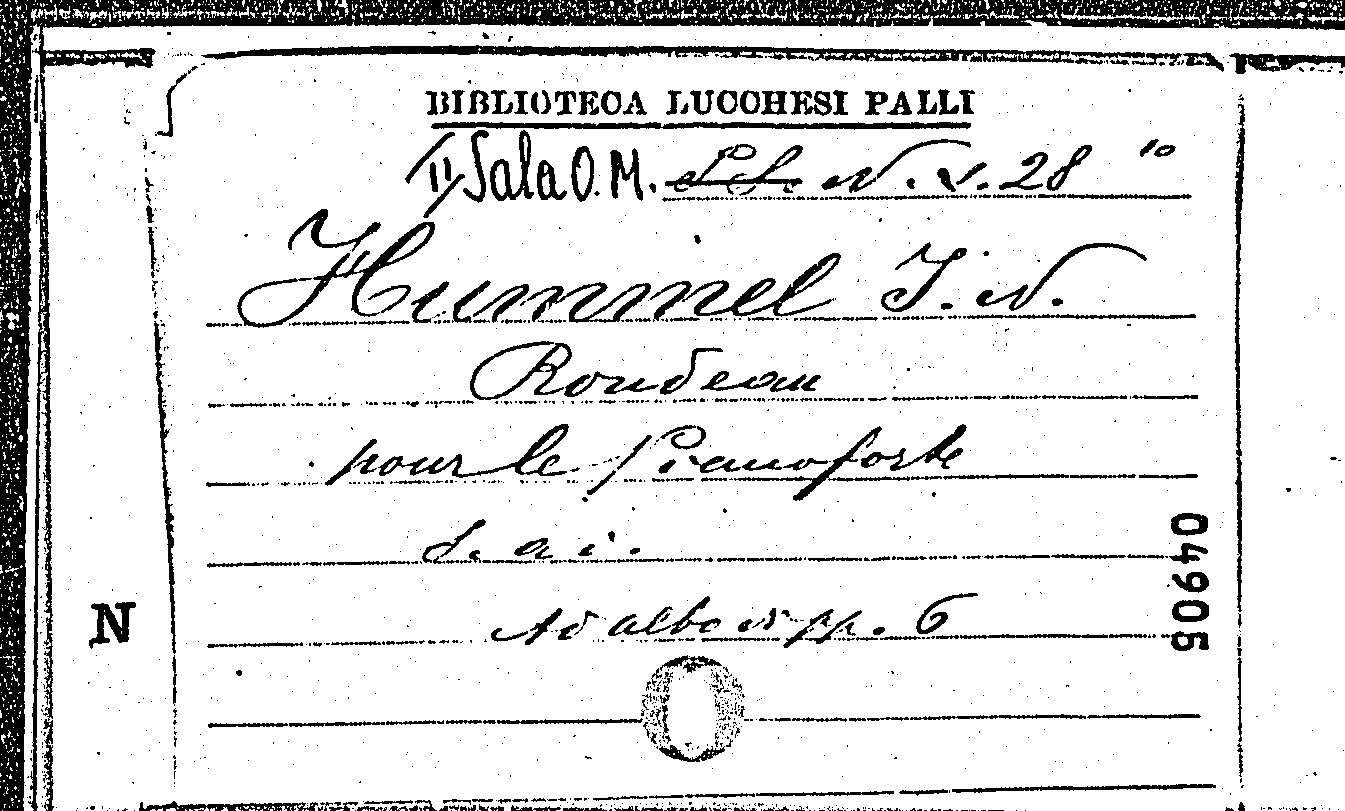 BIBLIOTECA LUCCHESI PALLI
II Sala O. M. N. V. 28 10
Hummel J. N.
Rondeau
pour le Pianoforte
S. a i.
Ad albo di pp. 6
N
04905